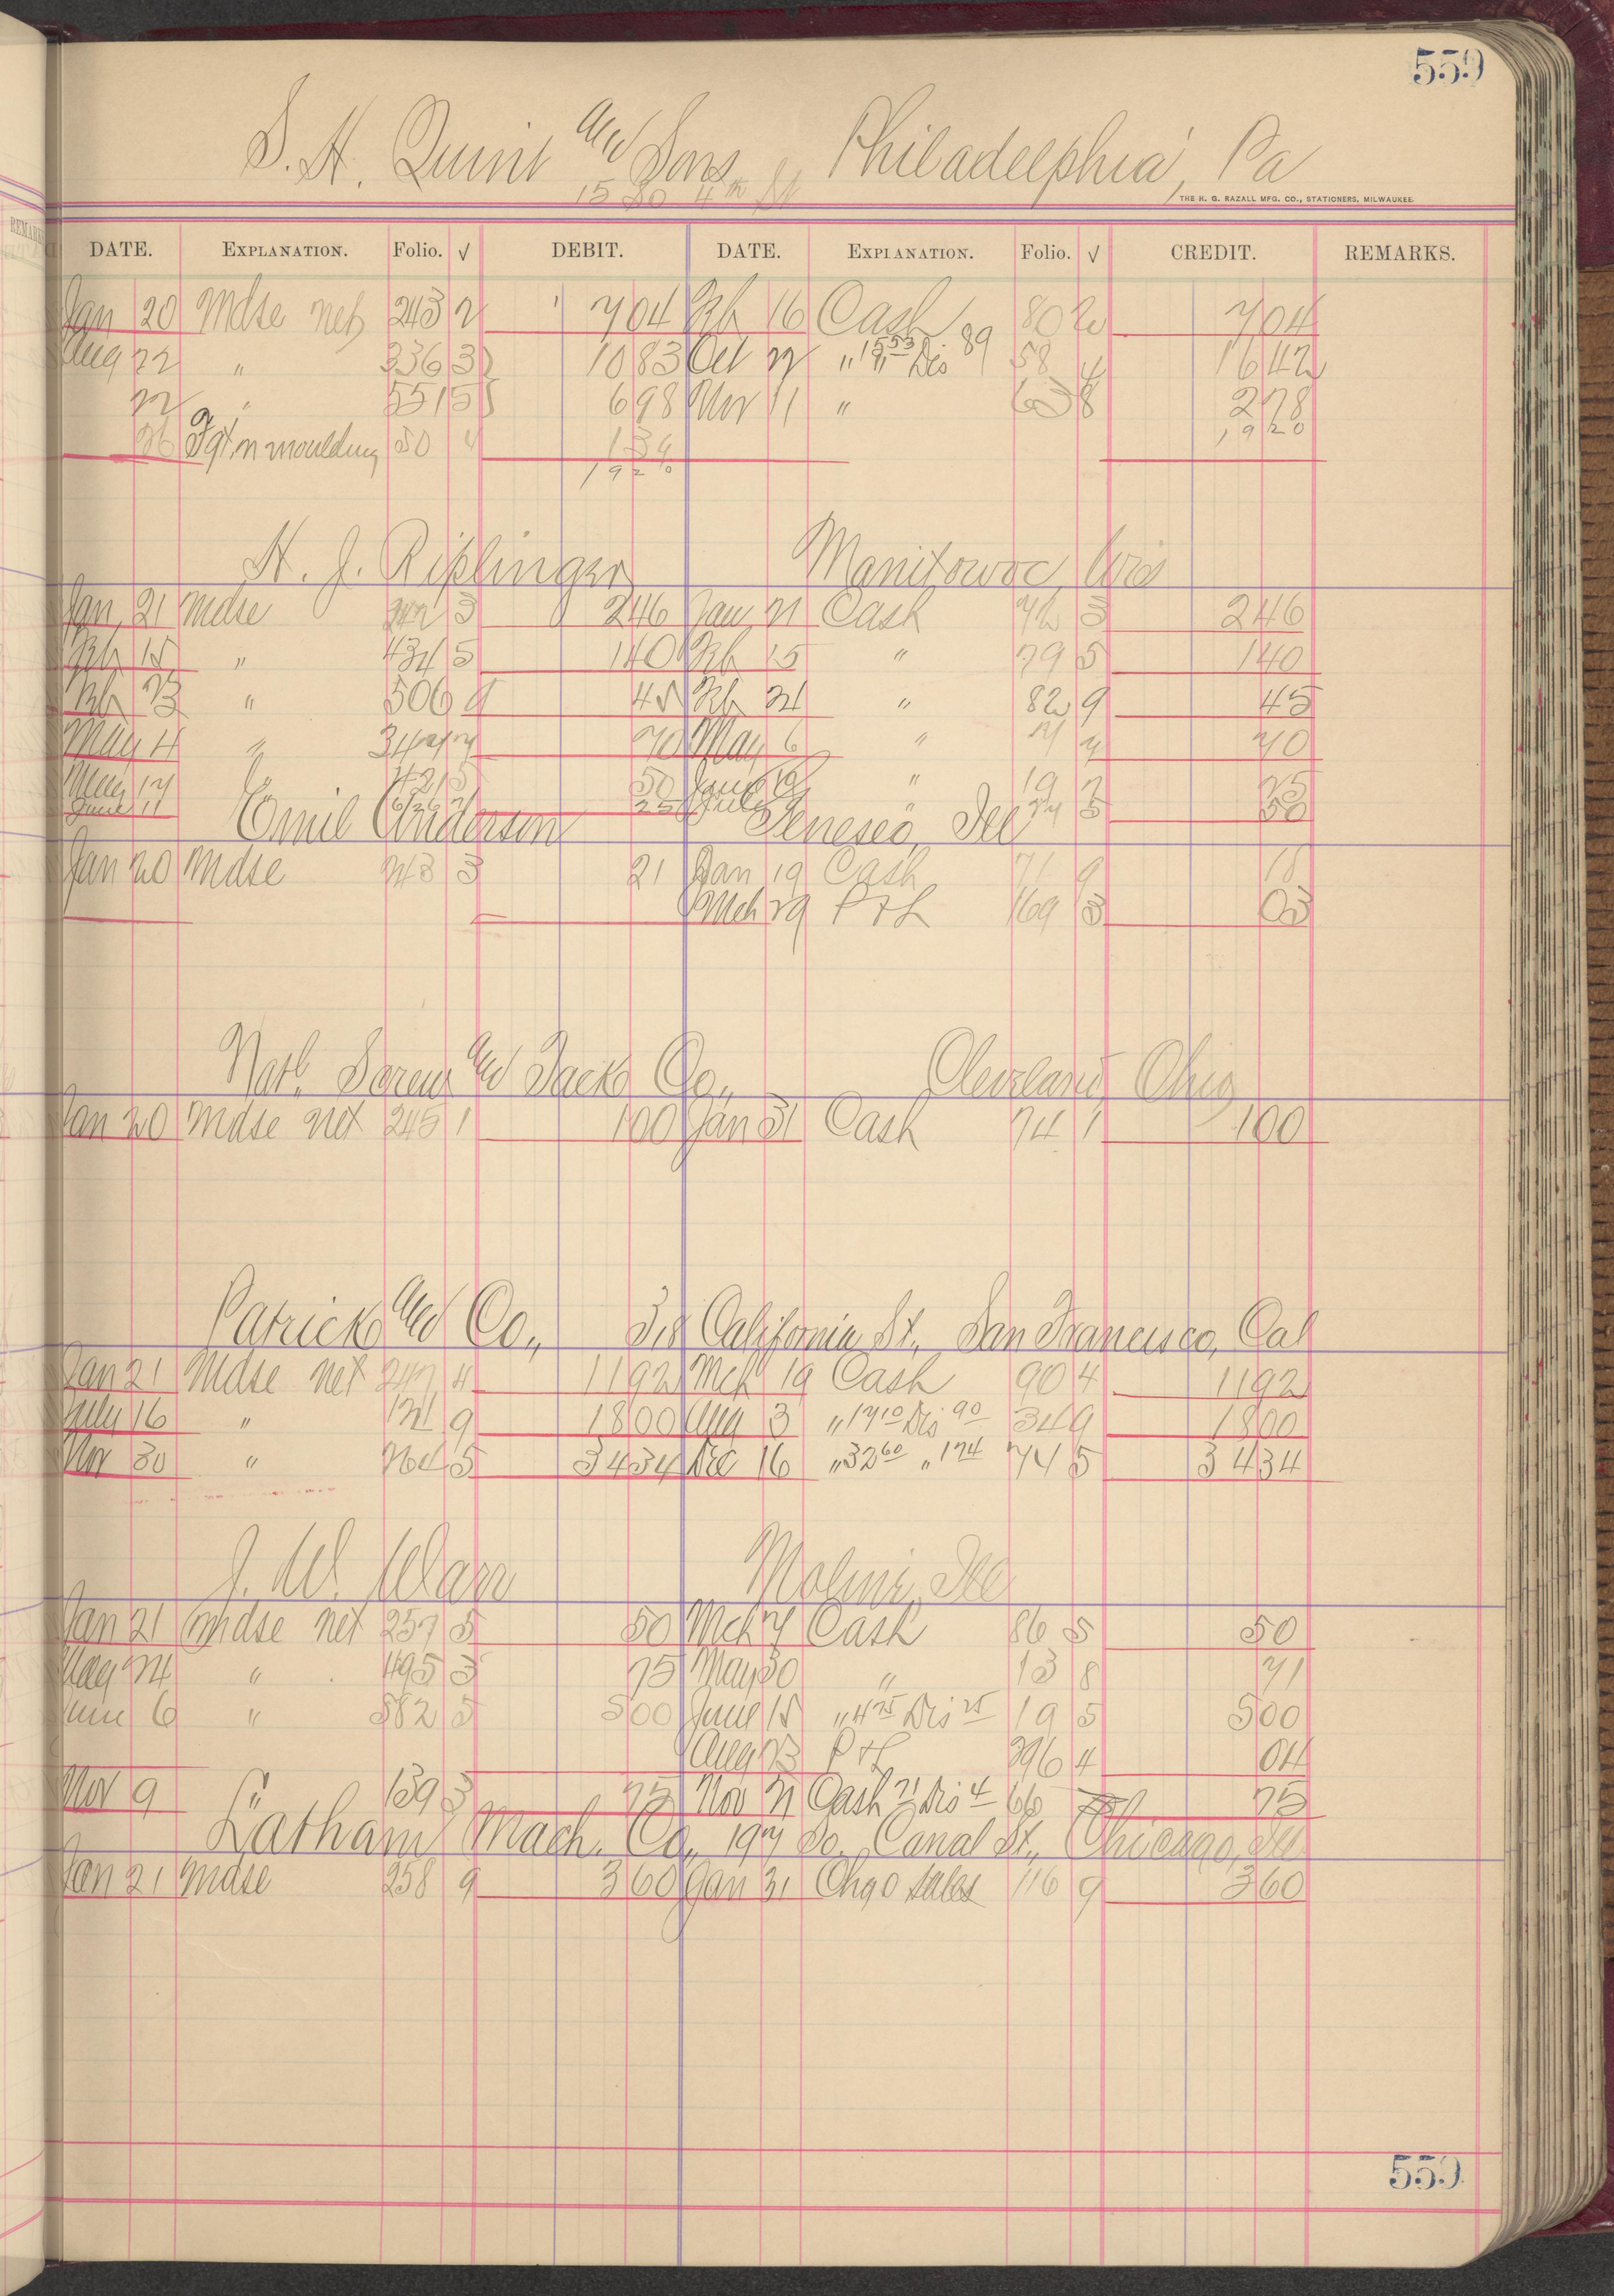 559
S. H. Quint and Sons, Philadelphia, Pa
15 So 4th St
THE H. G. RAZALL MFG. CO., STATIONERS, MILWAUKEE.
DATE. EXPLANATION. Folio. √ DEBIT. DATE. EXPLANATION. Folio. √ CREDIT. REMARKS.
Jan 20 Mdse net 243 2 704 Feb 16 Cash 80 2 704
Aug 22 " 336 3 1083 Oct " 15 53 Dis 89 58 4 1642
" 551 5 698 Nov 11 " 63 8 278
26 Fgt on moulding 50 4 139 1920
1920
H. J. Riplinger Manitowoc, Wis
Jan 21 Mdse 3 246 Jan Cash 3 246
Feb 15 " 434 5 140 Feb 15 " 79 5 140
Feb 23 " 506 9 45 Feb " 82 9 45
May 4 " 70 May 6 " 70
May 17 50 June " 19 25
June 11 25 July 5 50
Emil Anderson Geneseo, Ill
Jan 20 Mdse 243 3 21 Jan 19 Cash 71 9 18
Mch 29 P & L 169 3 03
Natl. Screw and Tack Co., Cleveland, Ohio
Jan 20 Mdse net 245 1 100 Jan 31 Cash 74 1 100
Patrick and Co., 318 California St., San Francisco, Cal
Jan 21 Mdse net 247 4 1192 Mch 19 Cash 90 4 1192
July 16 " 121 9 1800 Aug 3 " 17 10 Dis 90 34 9 1800
Nov 30 " 264 5 3434 Dec 16 " 32 60 " 1 74 74 5 3434
J. W. Warr Moline, Ill
Jan 21 Mdse net 257 5 50 Mch 7 Cash 86 5 50
May 24 " 495 3 75 May 30 " 13 8 71
June 6 " 582 5 500 June 15 " 4 75 Dis 25 19 5 500
Aug 23 P & L 296 4 04
Nov 9 " 139 3 75 Nov 21 Cash 71 Dis 4 66 75
Latham Mach. Co., 197 So. Canal St., Chicago, Ill
Jan 21 Mdse 258 9 360 Jan 31 Chgo Sales 116 9 360
559